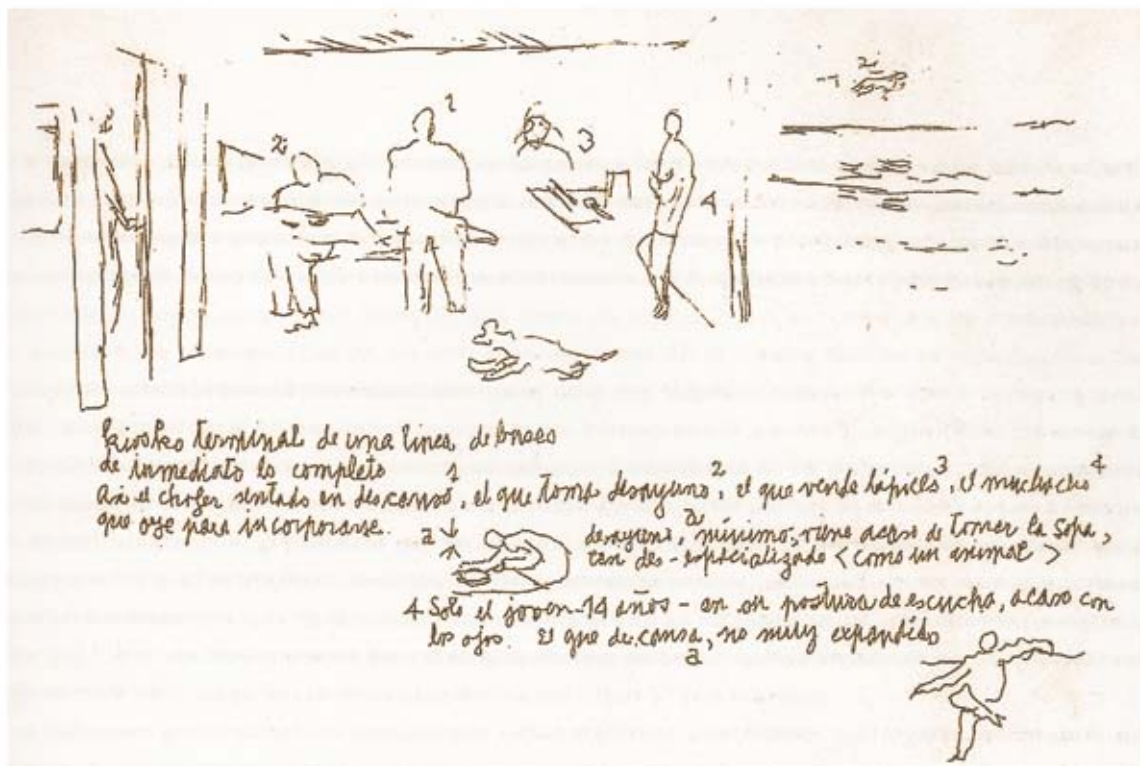 2
1
2
3
2
a
4
kiosko terminal de una linea de buses
de inmediato lo completo
1 2 3 4
Asi el chofer sentado en descanso, el que toma desayuno, el que vende lapices, el muchacho
que oye para incorporarse.
a desayuno, minimo, acaso de tomar la sopa,
a tan des-espacializado <como un animal>
4 Solo el joven-14 años - en postura de escucha, acaso con
los ojos El que descansa, no muy expandido
a